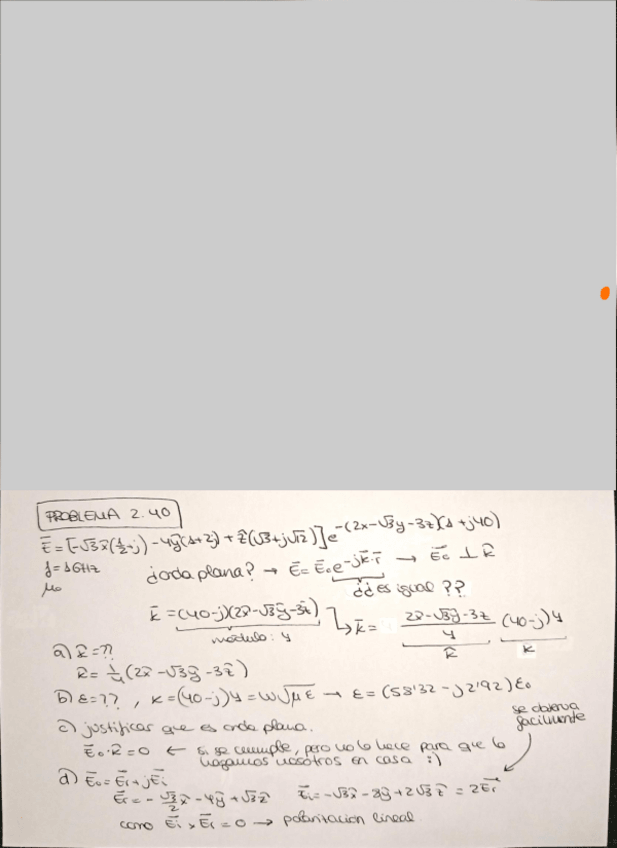 PROBLEMA 2.40
Ē = [-√3x̂(1/2+j) -4ŷ(1+2j) + ẑ(√3+j√12)] e^-(2x-√3y-3z)(1+j40)
f = 1GHz
¿onda plana? → Ē = Ē₀e^-jk̄·r̄ → Ē₀ ⊥ k̂
μ₀
¿¿es igual??
k̄ = (40-j)(2x̂-√3ŷ-3ẑ) ↳ k̄ = (2x̂-√3ŷ-3ẑ)/4 (40-j)4
módulo: 4
k̂
k
a) k̂ = ??
k̂ = 1/4 (2x̂ -√3ŷ -3ẑ)
b) ε = ??, k = (40-j)4 = ω√με → ε = (58'32 - j2'92)ε₀
c) justificar que es onda plana.
se observa
facilmente
Ē₀·k̂ = 0 ← si se cumple, pero no lo hace para que lo
hagamos nosotros en casa :)
d) Ē₀ = Ēr + jĒi
Ēr = -√3/2 x̂ - 4ŷ + √3ẑ Ēi = -√3x̂ - 8ŷ + 2√3ẑ = 2Ēr
como Ēi × Ēr = 0 → polarización lineal